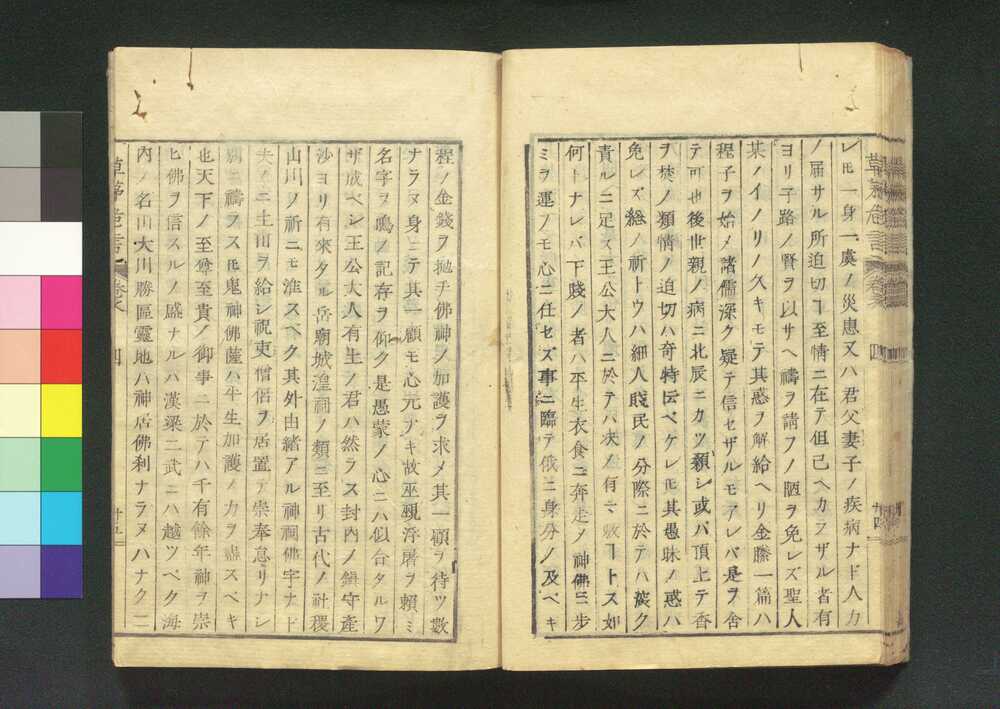 レㇳモ一身一處ノ災患又ハ君父妻子ノ疾病ナド人力
ノ届サル所迫切ヿ至情ニ在テ但己ヘカラザル者有
ヨリ子路ノ賢ヲ以サヘ禱ヲ請フノ陋ヲ免レズ聖人
某ノイノリノ久キモテ其惑ヲ解給ヘリ金縢一篇ハ
程子ヲ始メ諸儒深ク疑テ信セザルモアレバ是ヲ舍
テ可也後世親ノ病ニ北辰ニカツ類シ或バ頂上テ香
ヲ焚ノ類情ノ迫切ハ奇特云ベケレㇳモ其愚昧ノ惑ハ
免レズ 祈トウハ細人賤民ノ分際ニ於テハ 
責ルニ足ス王公大人ニ於テハ決ノ有 敷ヿトス如
何トナレバ下賤ノ者ハ平生衣食ニ奔走ノ神佛ニ歩
ミヲ運ノモ心ニ任セズ事ニ臨テ俄ニ身分ノ及ベキ
草茅危言 巻 四 廿四
程ノ金錢ヲ抛チ佛神ノ加護ヲ求メ其一顧ヲ待ツ數
ナラヌ身ニテ其一顧モ心元ナキ故巫覡浮屠ヲ賴ミ
名字ヲ鳴ノ記存ヲ仰ク是愚蒙ノ心ニハ似合タルワ
ザ成ベシ王公大人有生ノ君ハ然ラス封内ノ鎭守産
沙ヨリ有來タル岳廟城湟祠ノ類ニ至リ古代ノ社稷
山川ノ祈ニモ准スベク其外由緒アル神祠佛宇ナド
夫々ニ土田ヲ給シ祝吏僧侶ヲ居置テ崇奉怠リナシ
別ニ禱ラスㇳモ鬼神佛薩ハ平生加護ノ力ヲ盡スベキ
也天下ノ至尊至貴ノ御事ニ於テハ千有餘年神ヲ崇
ヒ佛ヲ信スルノ盛ナルハ漢梁二武ニハ越ツベク海
内ノ名山大川勝區靈地ハ神居佛刹ナラヌハナク二
草茅危言 巻 四 廿五